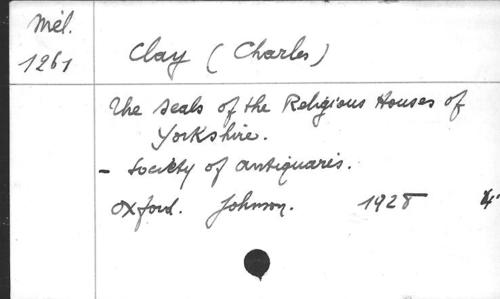 Mél.
1261
Clay (Charles)
The seals of the Religious Houses of
Yorkshire.
- Society of antiquaris.
Oxford. Johnson. 1928 4°